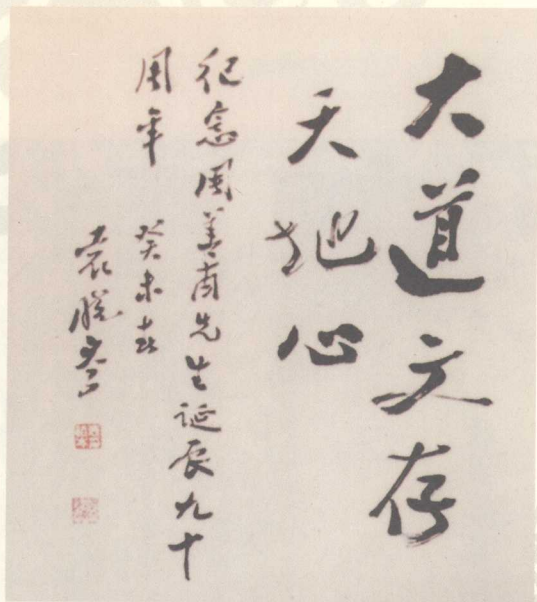 大道文存
天地心
纪念周善甫先生诞辰九十
周年 癸未春
袁晓岑